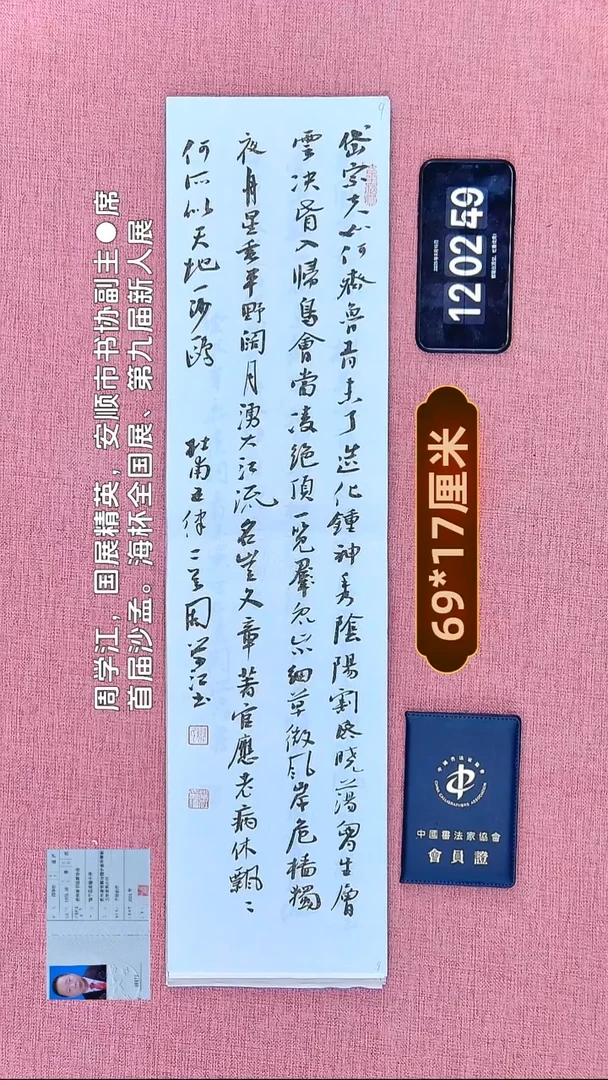 周学江，国展精英，安顺市书协副主●席
首届沙孟。海杯全国展、第九届新人展
岱宗夫如何齊魯青未了造化鍾神秀陰陽割昏曉蕩胷生層
雲決眥入歸鳥會當凌絕頂一覽眾山小細草微風岸危檣獨
夜舟星垂平野闊月湧大江流名豈文章著官應老病休飄〻
何所似天地一沙鷗 杜甫五律二首 周學江書
12 02 59
69*17厘米
中國書法家協會
會員證